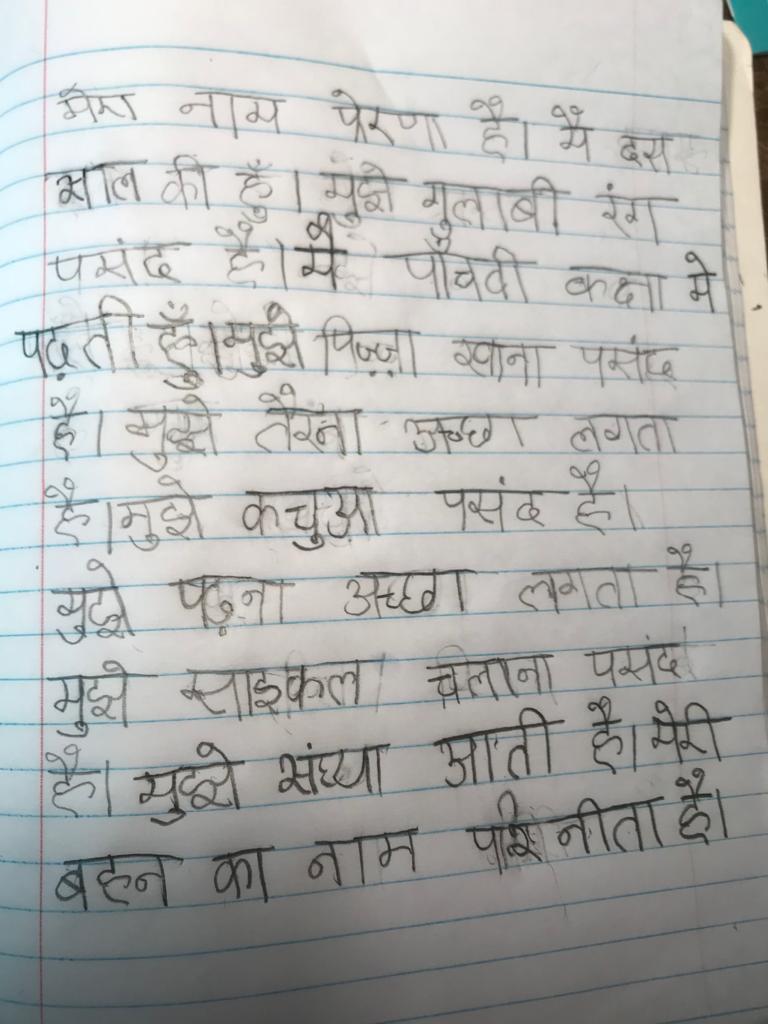 मेरा नाम प्रेरणा है। मै दस
साल की हूँ। मुझे गुलाबी रंग
पसंद है। मै पाँचवी कक्षा मे
पढ़ती हूँ। मुझे पिज़्ज़ा खाना पसंद
है। मुझे तैरना अच्छा लगता
है। मुझे कचुआ पसंद है।
मुझे पढ़ना अच्छा लगता है।
मुझे साइकल चलाना पसंद
है। मुझे संध्या आती है। मेरी
बहन का नाम परिनीता है।